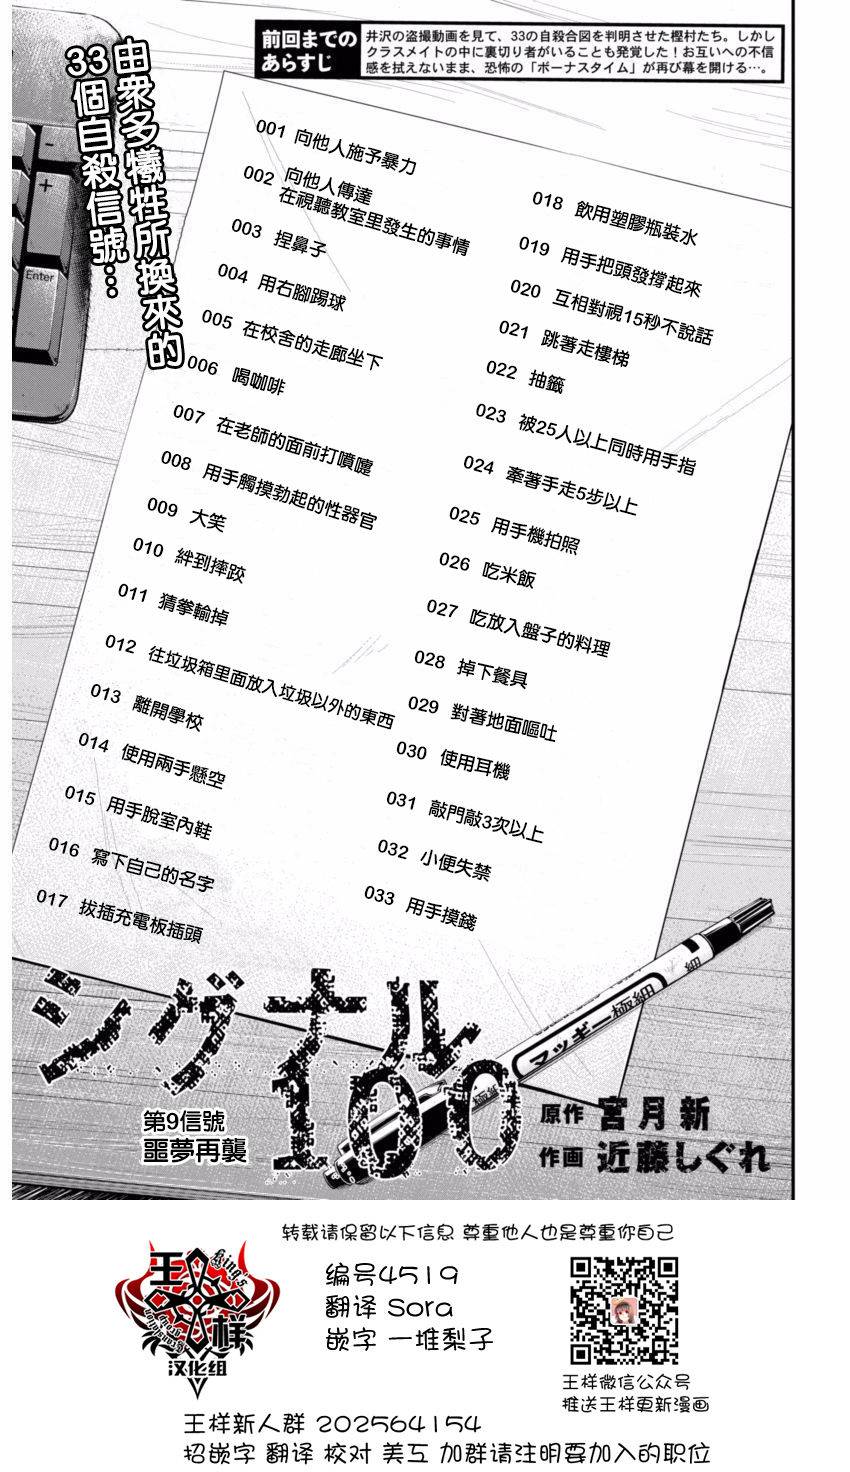 前回までの
あらすじ
井沢の盗撮動画を見て、33の自殺合図を判明させた樫村たち。しかし
クラスメイトの中に裏切り者がいることも発覚した！お互いへの不信
感を拭えないまま、恐怖の「ボーナスタイム」が再び幕を開ける…。
由衆多犧牲所換來的
33個自殺信號…
-
+
Enter
001 向他人施予暴力
002 向他人傳達
在視聽教室里發生的事情
003 捏鼻子
004 用右腳踢球
005 在校舍的走廊坐下
006 喝咖啡
007 在老師的面前打噴嚏
008 用手觸摸勃起的性器官
009 大笑
010 絆到摔跤
011 猜拳輸掉
012 往垃圾箱里面放入垃圾以外的東西
013 離開學校
014 使用兩手懸空
015 用手脫室內鞋
016 寫下自己的名字
017 拔插充電板插頭
018 飲用塑膠瓶裝水
019 用手把頭發撐起來
020 互相對視15秒不說話
021 跳著走樓梯
022 抽籤
023 被25人以上同時用手指
024 牽著手走5步以上
025 用手機拍照
026 吃米飯
027 吃放入盤子的料理
028 掉下餐具
029 對著地面嘔吐
030 使用耳機
031 敲門敲3次以上
032 小便失禁
033 用手摸錢
マッギー極細
細
極細
シグナル
100
第9信號
噩夢再襲
原作 宮月新
作画 近藤しぐれ
转载请保留以下信息 尊重他人也是尊重你自己
王样
King's
汉化组
编号4519
翻译 Sora
嵌字 一堆梨子
王样微信公众号
推送王样更新漫画
王样新人群 202564154
招嵌字 翻译 校对 美工 加群请注明要加入的职位